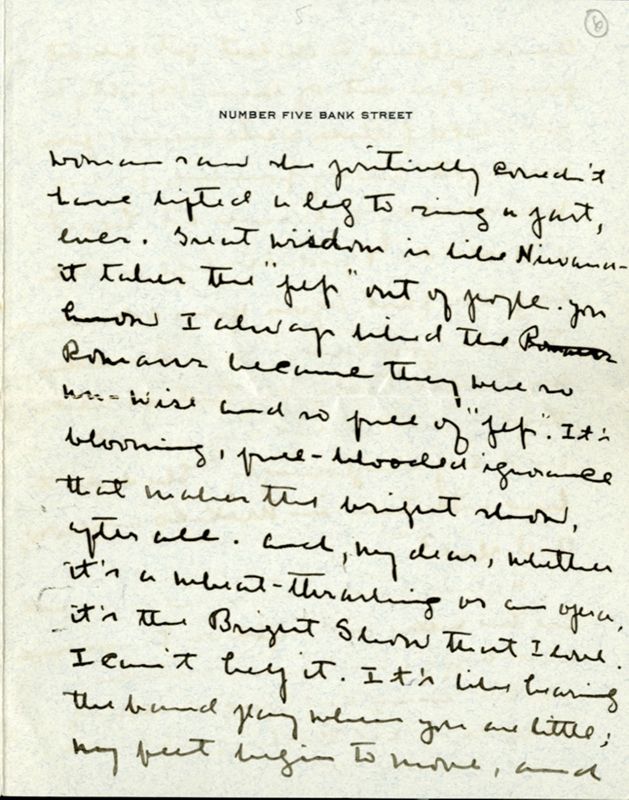 5
6
NUMBER FIVE BANK STREET
woman said she positively couldn't
have lifted a leg to sing a part,
ever. Great wisdom is like Nirvana-
it takes the "pep" out of people. you
know I always liked the Romans
Romans because they were so
un-wise and so full of "pep". It's
blooming, full-blooded ignorance
that makes the bright show,
after all. And, my dear, whether
it's a wheat-thrashing or an opera,
it's the Bright Show that I love.
I can't help it. It's like hearing
the band play when you are little;
my feet begin to move, and